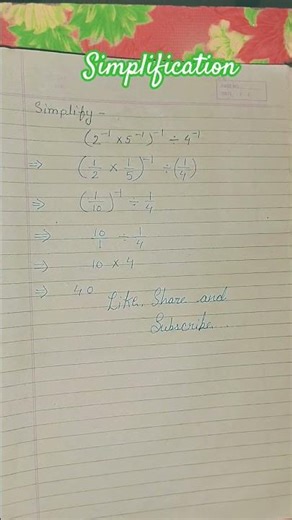 Simplification
Simplify -
(2⁻¹ × 5⁻¹)⁻¹ ÷ 4⁻¹
⇒ (1/2 × 1/5)⁻¹ ÷ (1/4)
⇒ (1/10)⁻¹ ÷ 1/4
⇒ 10/1 ÷ 1/4
⇒ 10 × 4
⇒ 40
Like, Share and
Subscribe...